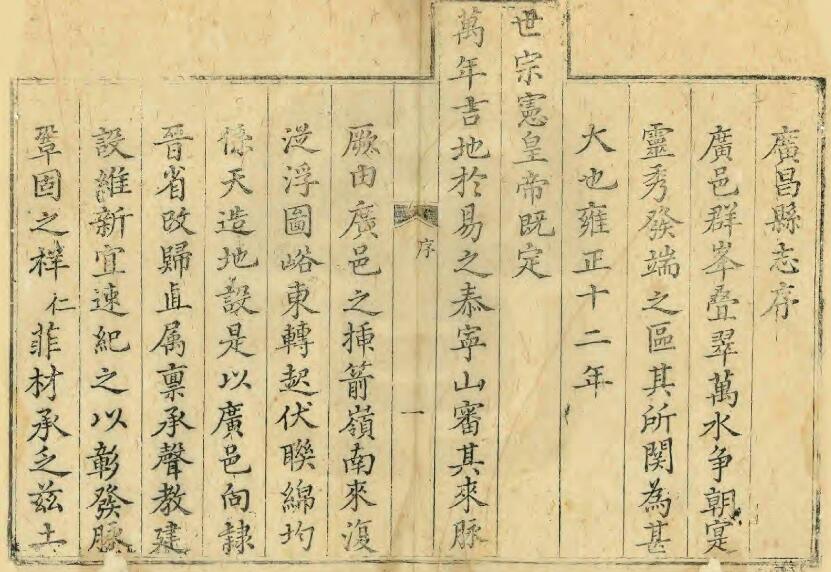 廣昌縣志序
廣邑群峯叠翠萬水争朝寔
靈秀發端之區其所関為甚
大也雍正十二年
世宗憲皇帝既定
萬年吉地於易之泰寧山審其來脉
序 一
厥由廣邑之揷箭嶺南來復
從浮圖峪東轉起伏聯綿均
係天造地設是以廣邑向隸
晉省改歸直属禀承聲教建
設維新宜速紀之以彰發脉
鞏固之祥仁菲材承乏兹土